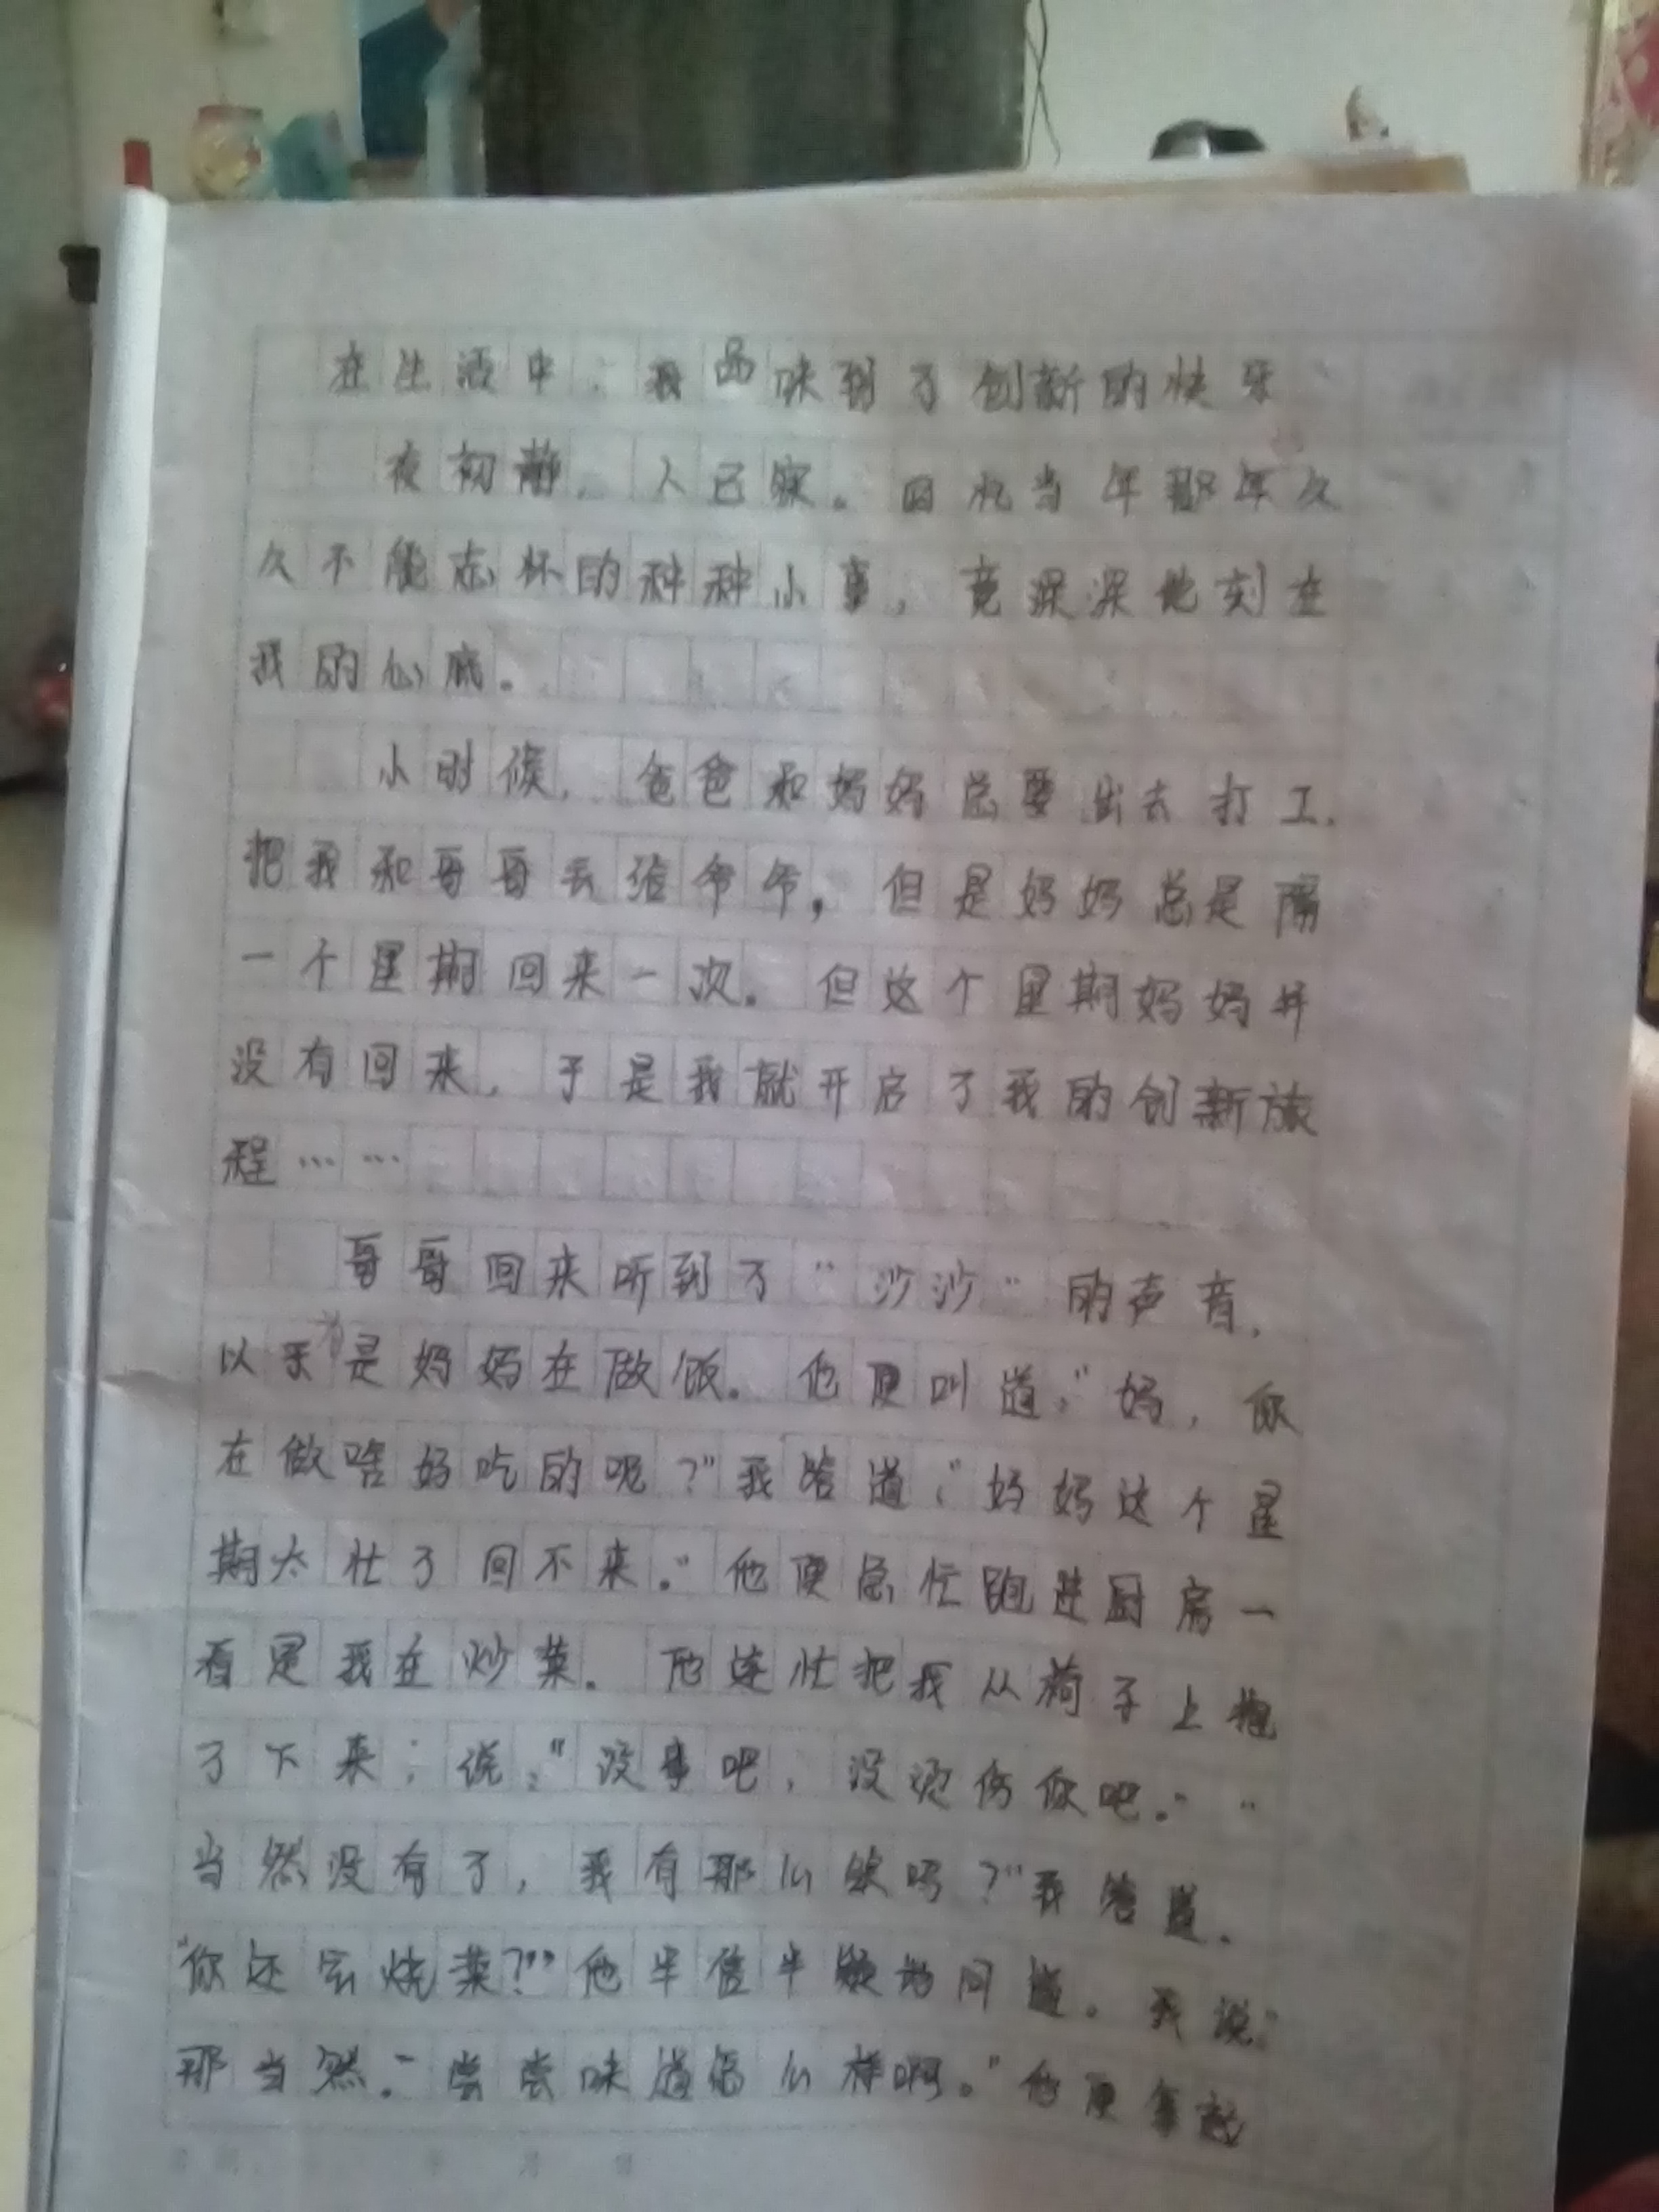 在生活中，我品味到了创新的快乐
夜初静，人已寐。回忆当年那年久
久不能忘怀的种种小事，竟深深地刻在
我的心底。
小时候，爸爸和妈妈总要出去打工，
把我和哥哥丢给爷爷，但是妈妈总是隔
一个星期回来一次。但这个星期妈妈并
没有回来，于是我就开启了我的创新旅
程……
哥哥回来听到了“沙沙”的声音，
以为是妈妈在做饭。他便叫道：“妈，你
在做啥好吃的呢？”我答道：“妈妈这个星
期太忙了回不来。”他便急忙跑进厨房一
看是我在炒菜。他连忙把我从椅子上抱
了下来，说：“没事吧，没烫伤你吧。”“
当然没有了，我有那么笨吗？”我答道。
“你还会烧菜？”他半信半疑地问道。我说：“
那当然。”尝尝味道怎么样啊。”他便拿起